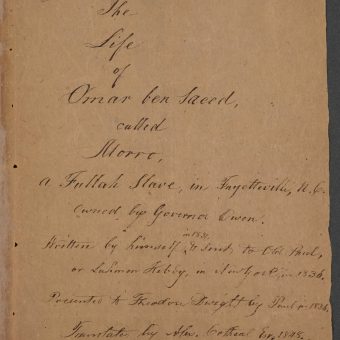 The
Life
of
Omar ben Saeed,
called
Morro,
a Fullah Slave, in Fayetteville, N.C.
owned by Governor Owen.
Written by himself in 1831 & sent to Old Paul,
or Lahmen Kebby, in New York, in 1836.
Presented to Theodore Dwight by Paul in 1836.
Translated by Alex. Cotheal Esq. 1848.